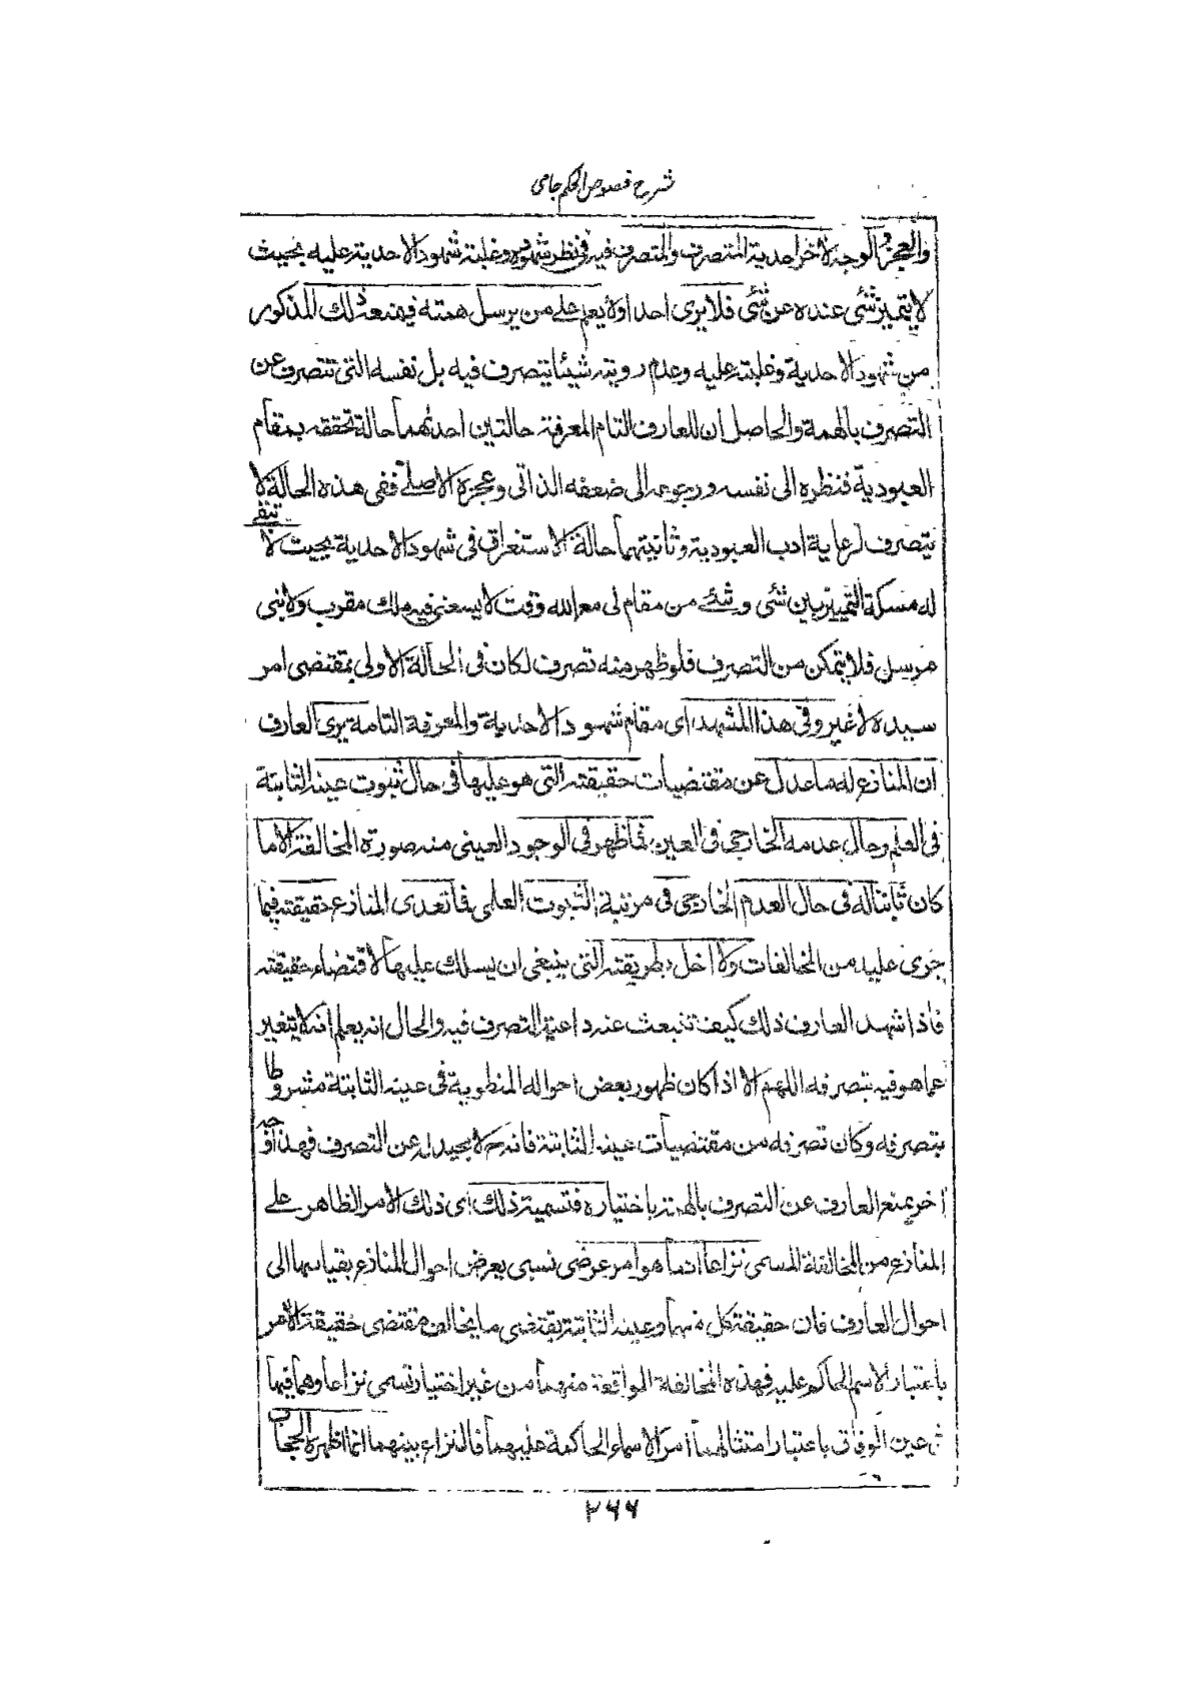 شرح فصوص الحكم جامى
والعجز والوجه الاخر احدية المتصرف والمتصرف فيه فى نظر شهوده وغلبة شهود الاحدية عليه بحيث
لا يتميز شئ عنده عن شئ فلا يرى احدا ولا يعلم على من يرسل همته فيمنعه ذلك المذكور
من شهود الاحدية وغلبته عليه وعدم رويته شيئا يتصرف فيه بل نفسه التى تتصرف عن
التصرف بالهمة والحاصل أن للعارف التام المعرفة حالتين احدٰهما حالة تحققه بمقام
العبودية فنظره الى نفسه ورجوعه الى ضعفه الذاتى وعجزه الاصلى ففى هذه الحالة لا
يتصرف لرعاية ادب العبودية وثانيتهما حالة الاستغراق فى شهود الاحدية بحيث لا تبقى
له مسكة التمييز بين شئ وشئ من مقام لى مع الله وقت لا يسعنى فيه ملك مقرب ولا نبى
مرسل فلا يتمكن من التصرف فلو ظهر منه تصرف لكان فى الحالة الاولى بمقتضى امر
سيده لا غير وفى هذا المشهد اى مقام شهود الاحدية والمعرفة التامة يرى العارف
ان المنازع له ما عدل عن مقتضيات حقيقته التى هو عليها فى حال ثبوت عينه الثابتة
فى العلم وحال عدمه الخارجى فى العين فما ظهر فى الوجود العينى منه صورة المخالفة الا ما
كان ثابتا له فى حال العدم الخارجى فى مرتبة الثبوت العلمى فما تعدى المنازع حقيقته فيما
جرى عليه من المخالفات ولا اخل بطريقته التى ينبغى ان يسلك عليها لاقتضاء حقيقته
فاذا شهد العارف ذلك كيف تنبعث عنه داعية التصرف فيه والحال انه يعلم انه لا يتغير
عما هو فيه بتصرفه اللهم الا اذا كان ظهور بعض احواله المنطوية فى عينه الثابتة مشروطا
بتصرفه وكان تصرفه من مقتضيات عينه الثابتة فانه ح لا يحيد له عن التصرف فهذا وجه
اخر يمنع العارف عن التصرف بالهمة باختياره فتسمية ذلك اى ذلك الامر الظاهر على
المنازع من المخالفة المسمى نزاعا انما هو امر عرضى نسبى يعرض احوال المنازع بقياسها الى
احوال العارف فان حقيقة كل منهما وعينه الثابتة يقتضى ما يخالف مقتضى حقيقة الاخر
باعتبار الاسم الحاكم عليه فهذه المخالفة الواقعة منهما من غير اختيار تسمى نزاعا وهما فيها
فى عين الوفاق باعتبار امتثالهما امر الاسماء الحاكمة عليهما فالنزاع بينهما انما اظهره الحجاب
٢٦٦